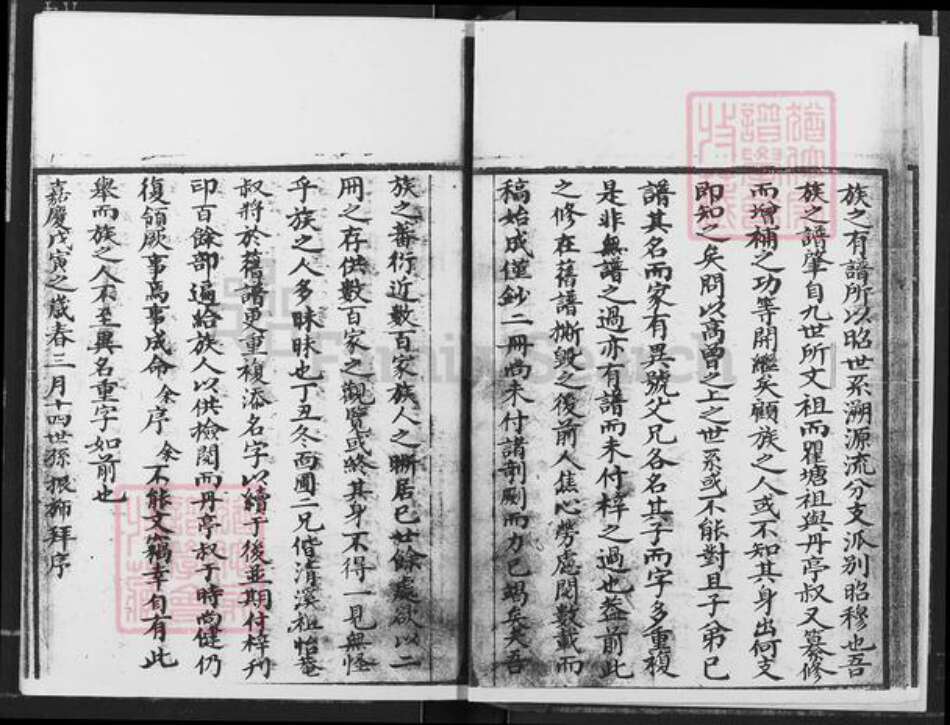 族之有譜所以昭世系溯源流分支派別昭穆也吾
族之譜肇自九世所文祖而瞿塘祖與丹亭叔又纂修
而增補之功等開繼矣顧族之人或不知其身出何支
即知之矣問以高曾之上之世系或不能對且子弟已
譜其名而家有異號父兄各名其子而字多重複
是非無譜之過亦有譜而未付梓之過也蓋前此
之修在舊譜撕毀之後前人焦心勞慮閱數載而
稿始成僅鈔二冊尚未付諸剞劂而力已竭矣夫吾
族之蕃衍近數百家族人之聯居已廿餘處欲以二
冊之存供數百家之觀覽或終其身不得一見無怪
乎族之人多昧昧也丁丑冬西圃二兄偕清溪祖怡菴
叔將於舊譜更重複添名字以續于後並期付梓刊
印百餘部遍給族人以供檢閱而丹亭叔于時尚健仍
復領厥事焉事成命余序余不能文竊幸自有此
舉而族之人不至異名重字如前也
嘉慶戊寅之歲春三月十四世孫振拜序
FamilySearch